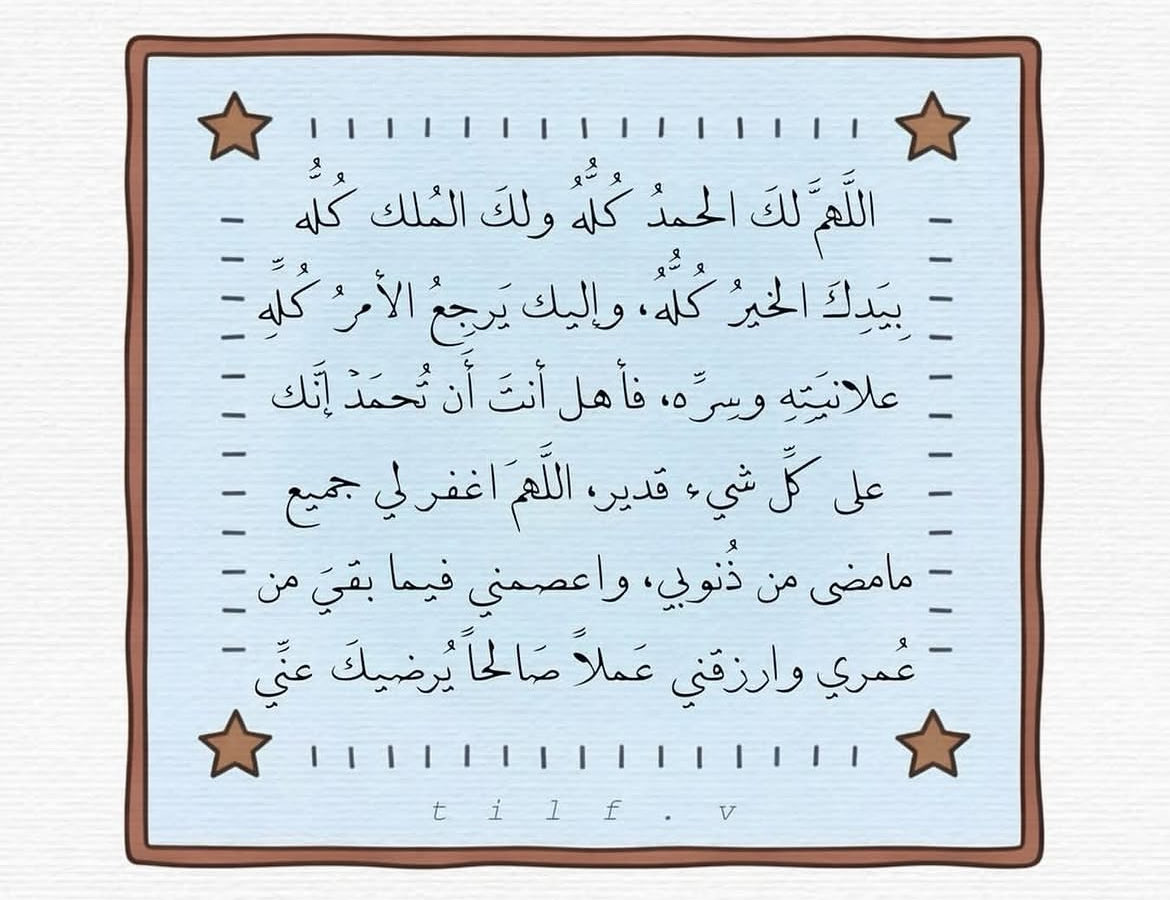 اللَّهمَّ لكَ الحمدُ كُلُّهُ ولكَ المُلك كُلُّه
بِيَدِكَ الخيرُ كُلُّهُ، وإليك يَرجِعُ الأمرُ كُلِّهِ
علانيَتِهِ وسِرِّه، فأهل أنتَ أَن تُحمَدْ إنَّك
على كلِّ شيء قدير، اللَّهمَ اغفر لي جميع
مامضى من ذُنوبي، واعصمني فيما بقيَ من
عُمري وارزقني عَملاً صَالحاً يُرضيكَ عنِّي
t i l f . v